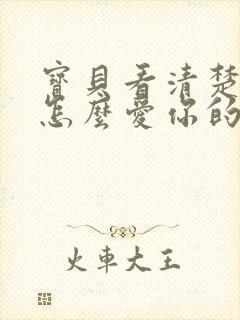 寶貝看清楚
怎麼愛你的
火車大王